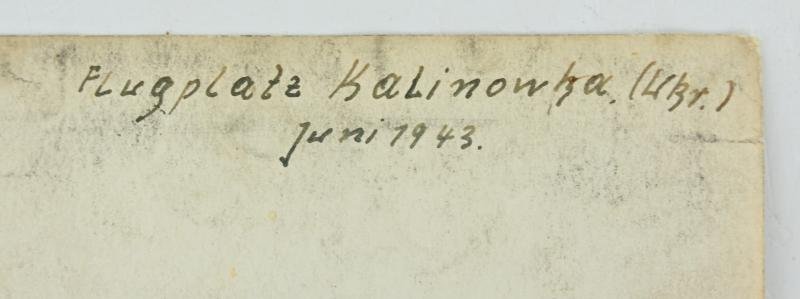 Flugplatz Kalinowka. (Ukr.)
Juni 1943.